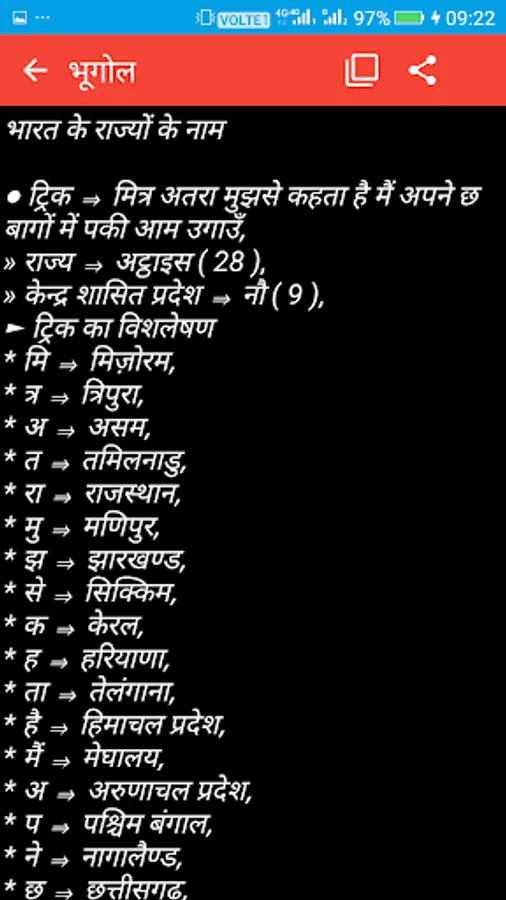 VOLTE1 4G 4G 1 2 97% 09:22
भूगोल
भारत के राज्यों के नाम
● ट्रिक ⇒ मित्र अतरा मुझसे कहता है मैं अपने छ
बागों में पकी आम उगाउँ,
» राज्य ⇒ अट्ठाइस ( 28 ),
» केन्द्र शासित प्रदेश ⇒ नौ ( 9 ),
► ट्रिक का विशलेषण
* मि ⇒ मिज़ोरम,
* त्र ⇒ त्रिपुरा,
* अ ⇒ असम,
* त ⇒ तमिलनाडु,
* रा ⇒ राजस्थान,
* मु ⇒ मणिपुर,
* झ ⇒ झारखण्ड,
* से ⇒ सिक्किम,
* क ⇒ केरल,
* ह ⇒ हरियाणा,
* ता ⇒ तेलंगाना,
* है ⇒ हिमाचल प्रदेश,
* मैं ⇒ मेघालय,
* अ ⇒ अरुणाचल प्रदेश,
* प ⇒ पश्चिम बंगाल,
* ने ⇒ नागालैण्ड,
* छ ⇒ छत्तीसगढ़,